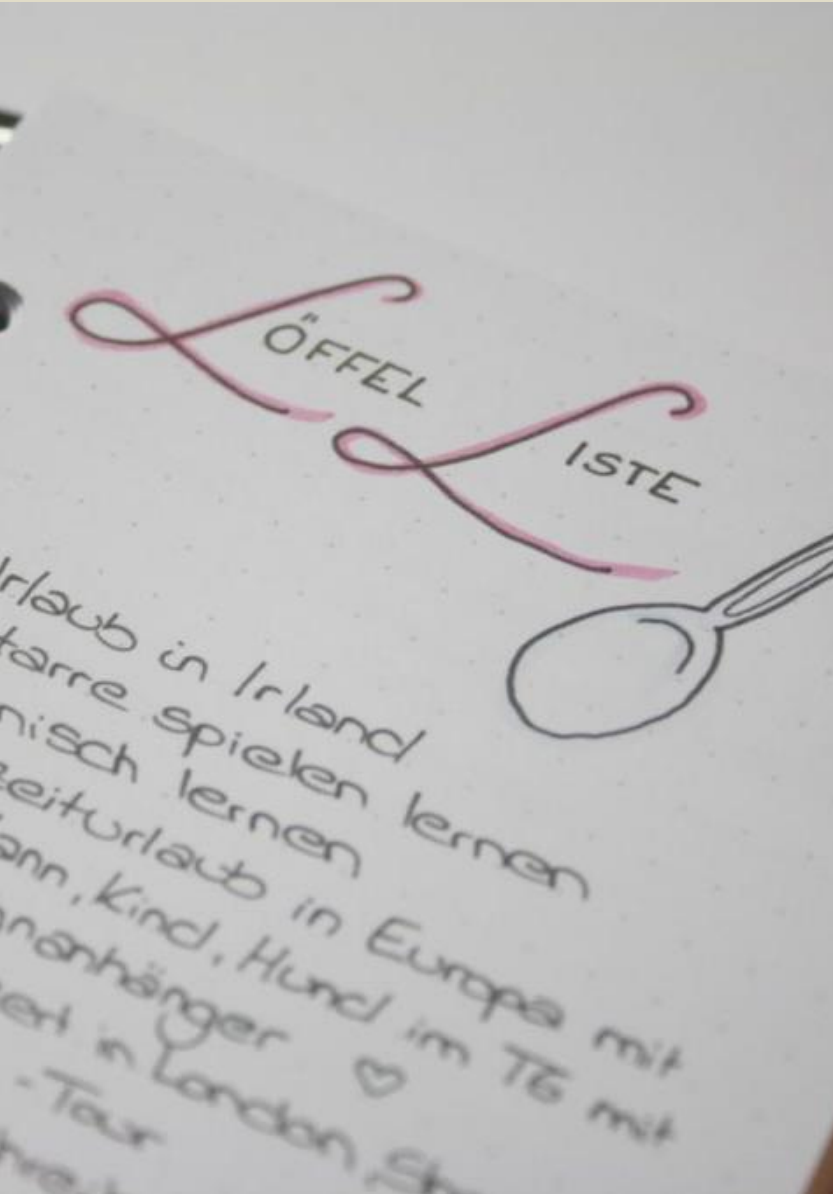 LÖFFEL
LISTE
Urlaub in Irland
tarre spielen lernen
nisch lernen
zeiturlaub in Europa mit
ann, Kind, Hund im T6 mit
nanhänger ♡
ert in London
-Tour